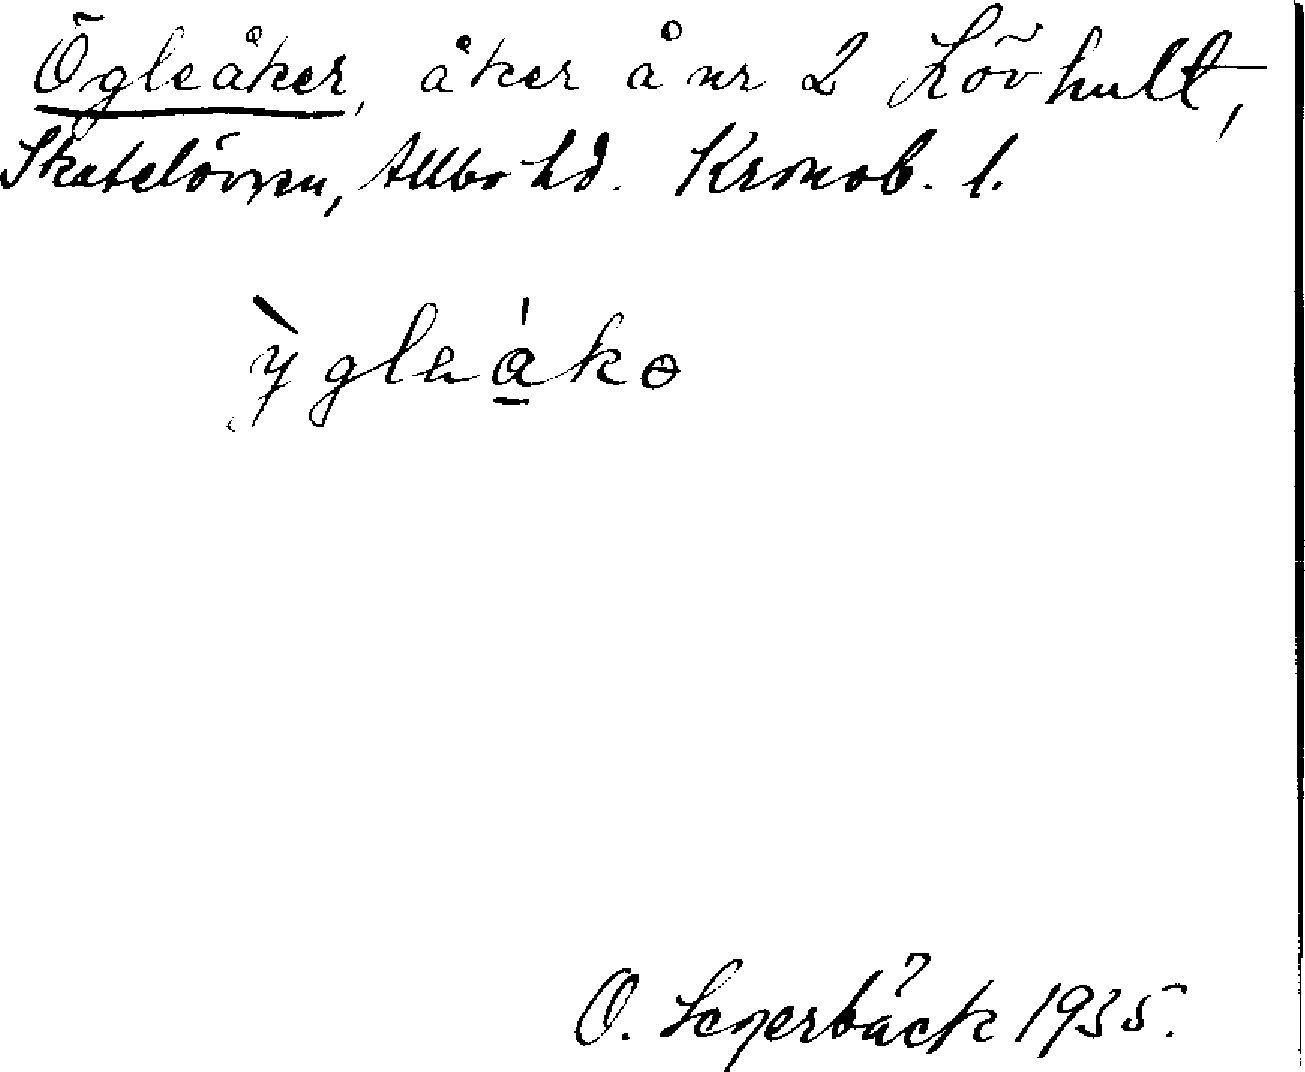 Ögleåker, åker å nr 2 Lövhult,
Skatelövssn, Allbo hd. Kronob. l.
ỳgleákə
O. 1935.